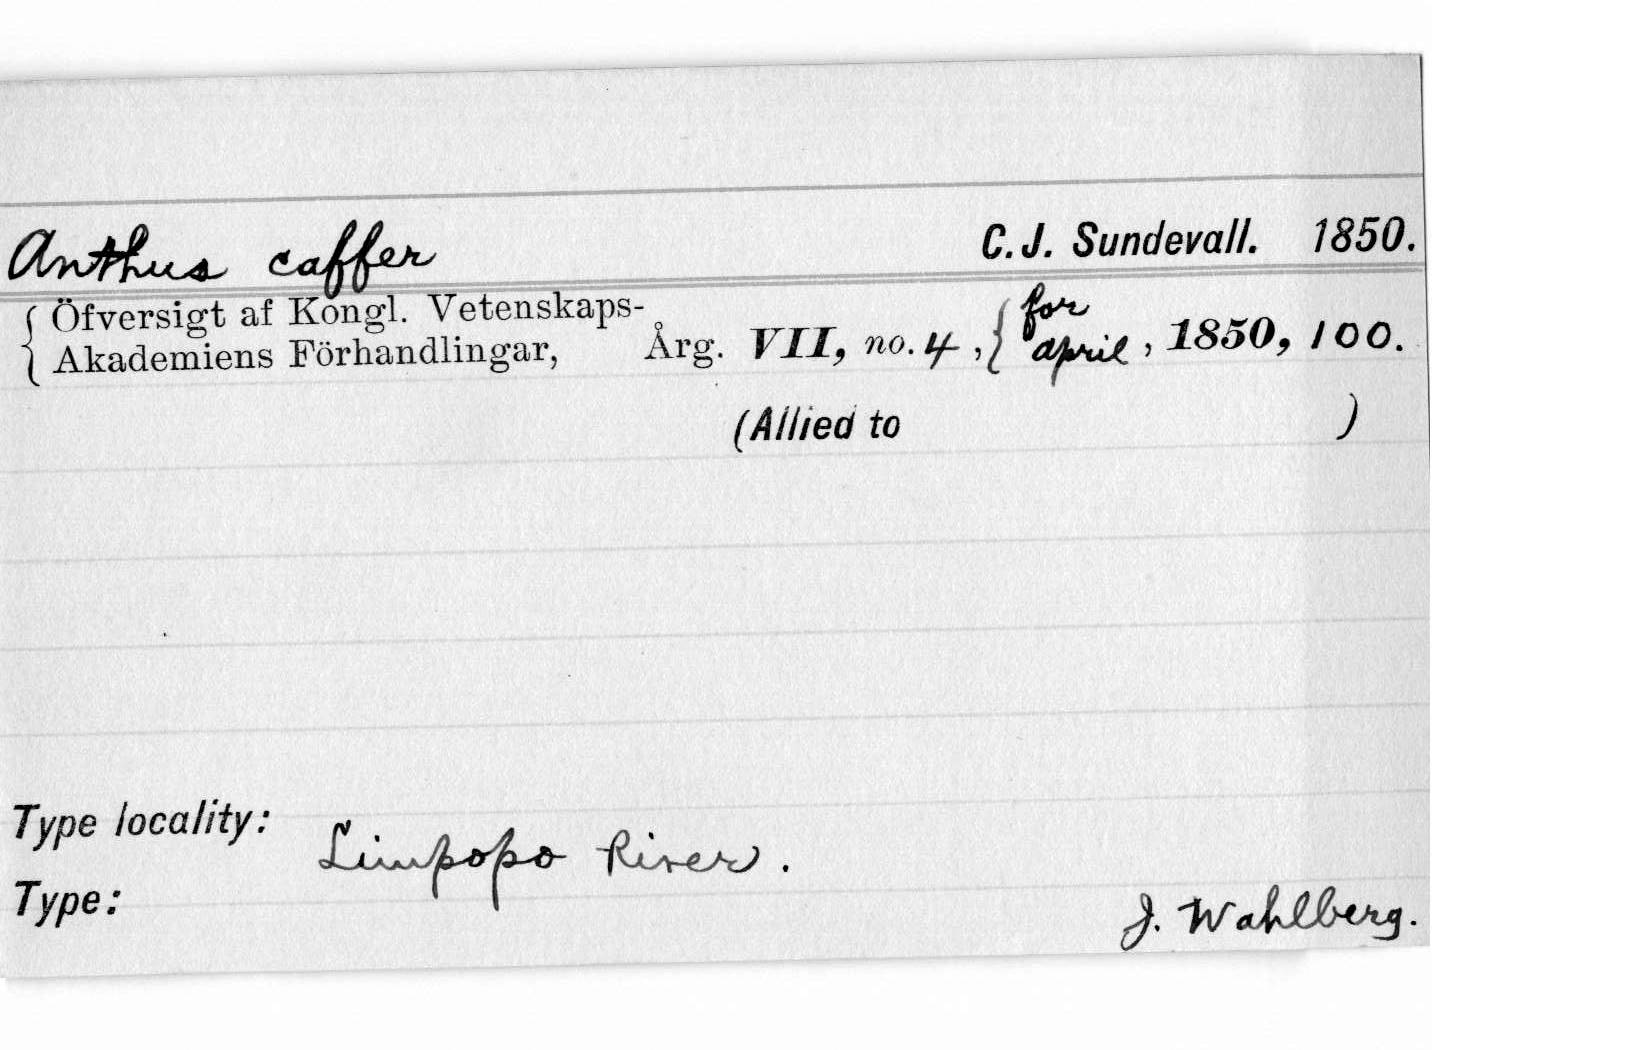 Anthus caffer C. J. Sundevall. 1850.
{ Öfversigt af Kongl. Vetenskaps-
Akademiens Förhandlingar, Årg. VII, no. 4, { for april, 1850, 100.
(Allied to )
Type locality: Limpopo River.
Type:
J. Wahlberg.